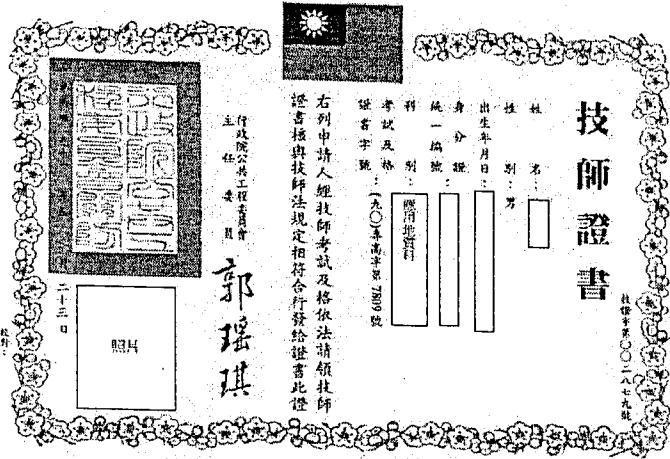 技師證書
技證字第〇〇二八七九號
姓名：
性別：男
出生年月日：
身分證
統一編號：
科別：應用地質科
考試及格
證書字號：(九〇)專高字第7809號
右列申請人經技師考試及格依法請領技師
證書核與技師法規定相符合行發給證書此證
行政院公共工程委員會
主任委員
郭瑤琪
二十三日
照片
校對：